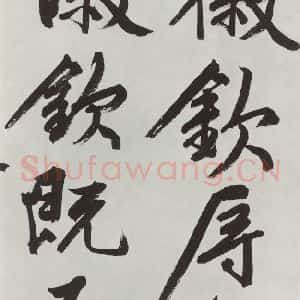 徽欽辱
徽欽既
Shufawang.CN